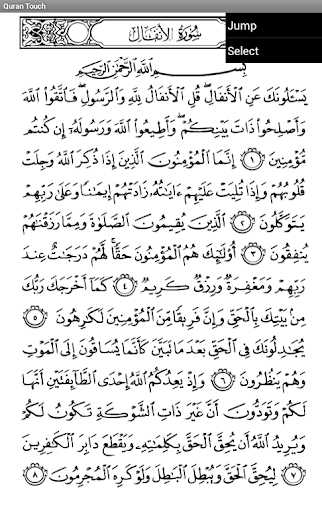 Quran Touch
Jump
Select
سُورَةُ الأَنفَال
بِسْمِ اللَّهِ الرَّحْمَٰنِ الرَّحِيمِ
يَسْـَٔلُونَكَ عَنِ الْأَنفَالِ ۖ قُلِ الْأَنفَالُ لِلَّهِ وَالرَّسُولِ ۖ فَاتَّقُوا اللَّهَ
وَأَصْلِحُوا ذَاتَ بَيْنِكُمْ ۖ وَأَطِيعُوا اللَّهَ وَرَسُولَهُ إِن كُنتُم
مُّؤْمِنِينَ ١ إِنَّمَا الْمُؤْمِنُونَ الَّذِينَ إِذَا ذُكِرَ اللَّهُ وَجِلَتْ
قُلُوبُهُمْ وَإِذَا تُلِيَتْ عَلَيْهِمْ ءَايَاتُهُ زَادَتْهُمْ إِيمَانًا وَعَلَىٰ رَبِّهِمْ
يَتَوَكَّلُونَ ٢ الَّذِينَ يُقِيمُونَ الصَّلَوٰةَ وَمِمَّا رَزَقْنَاهُمْ
يُنفِقُونَ ٣ أُولَٰئِكَ هُمُ الْمُؤْمِنُونَ حَقًّا ۚ لَّهُمْ دَرَجَاتٌ عِندَ
رَبِّهِمْ وَمَغْفِرَةٌ وَرِزْقٌ كَرِيمٌ ٤ كَمَا أَخْرَجَكَ رَبُّكَ
مِن بَيْتِكَ بِالْحَقِّ وَإِنَّ فَرِيقًا مِّنَ الْمُؤْمِنِينَ لَكَارِهُونَ ٥
يُجَادِلُونَكَ فِي الْحَقِّ بَعْدَ مَا تَبَيَّنَ كَأَنَّمَا يُسَاقُونَ إِلَى الْمَوْتِ
وَهُمْ يَنظُرُونَ ٦ وَإِذْ يَعِدُكُمُ اللَّهُ إِحْدَى الطَّائِفَتَيْنِ أَنَّهَا
لَكُمْ وَتَوَدُّونَ أَنَّ غَيْرَ ذَاتِ الشَّوْكَةِ تَكُونُ لَكُمْ
وَيُرِيدُ اللَّهُ أَن يُحِقَّ الْحَقَّ بِكَلِمَاتِهِ وَيَقْطَعَ دَابِرَ الْكَافِرِينَ
٧ لِيُحِقَّ الْحَقَّ وَيُبْطِلَ الْبَاطِلَ وَلَوْ كَرِهَ الْمُجْرِمُونَ ٨